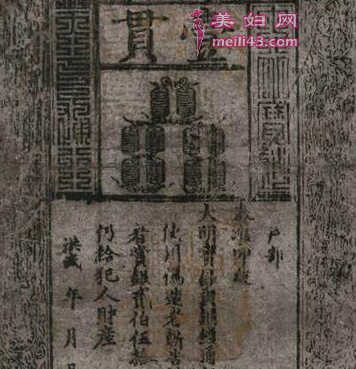 美妇网
meili43.com
壹貫
戶部
奏准印造
大明寶鈔與銅錢通
使用偽造者斬告
者賞銀貳伯伍拾
仍給犯人財産
洪武 年 月 日